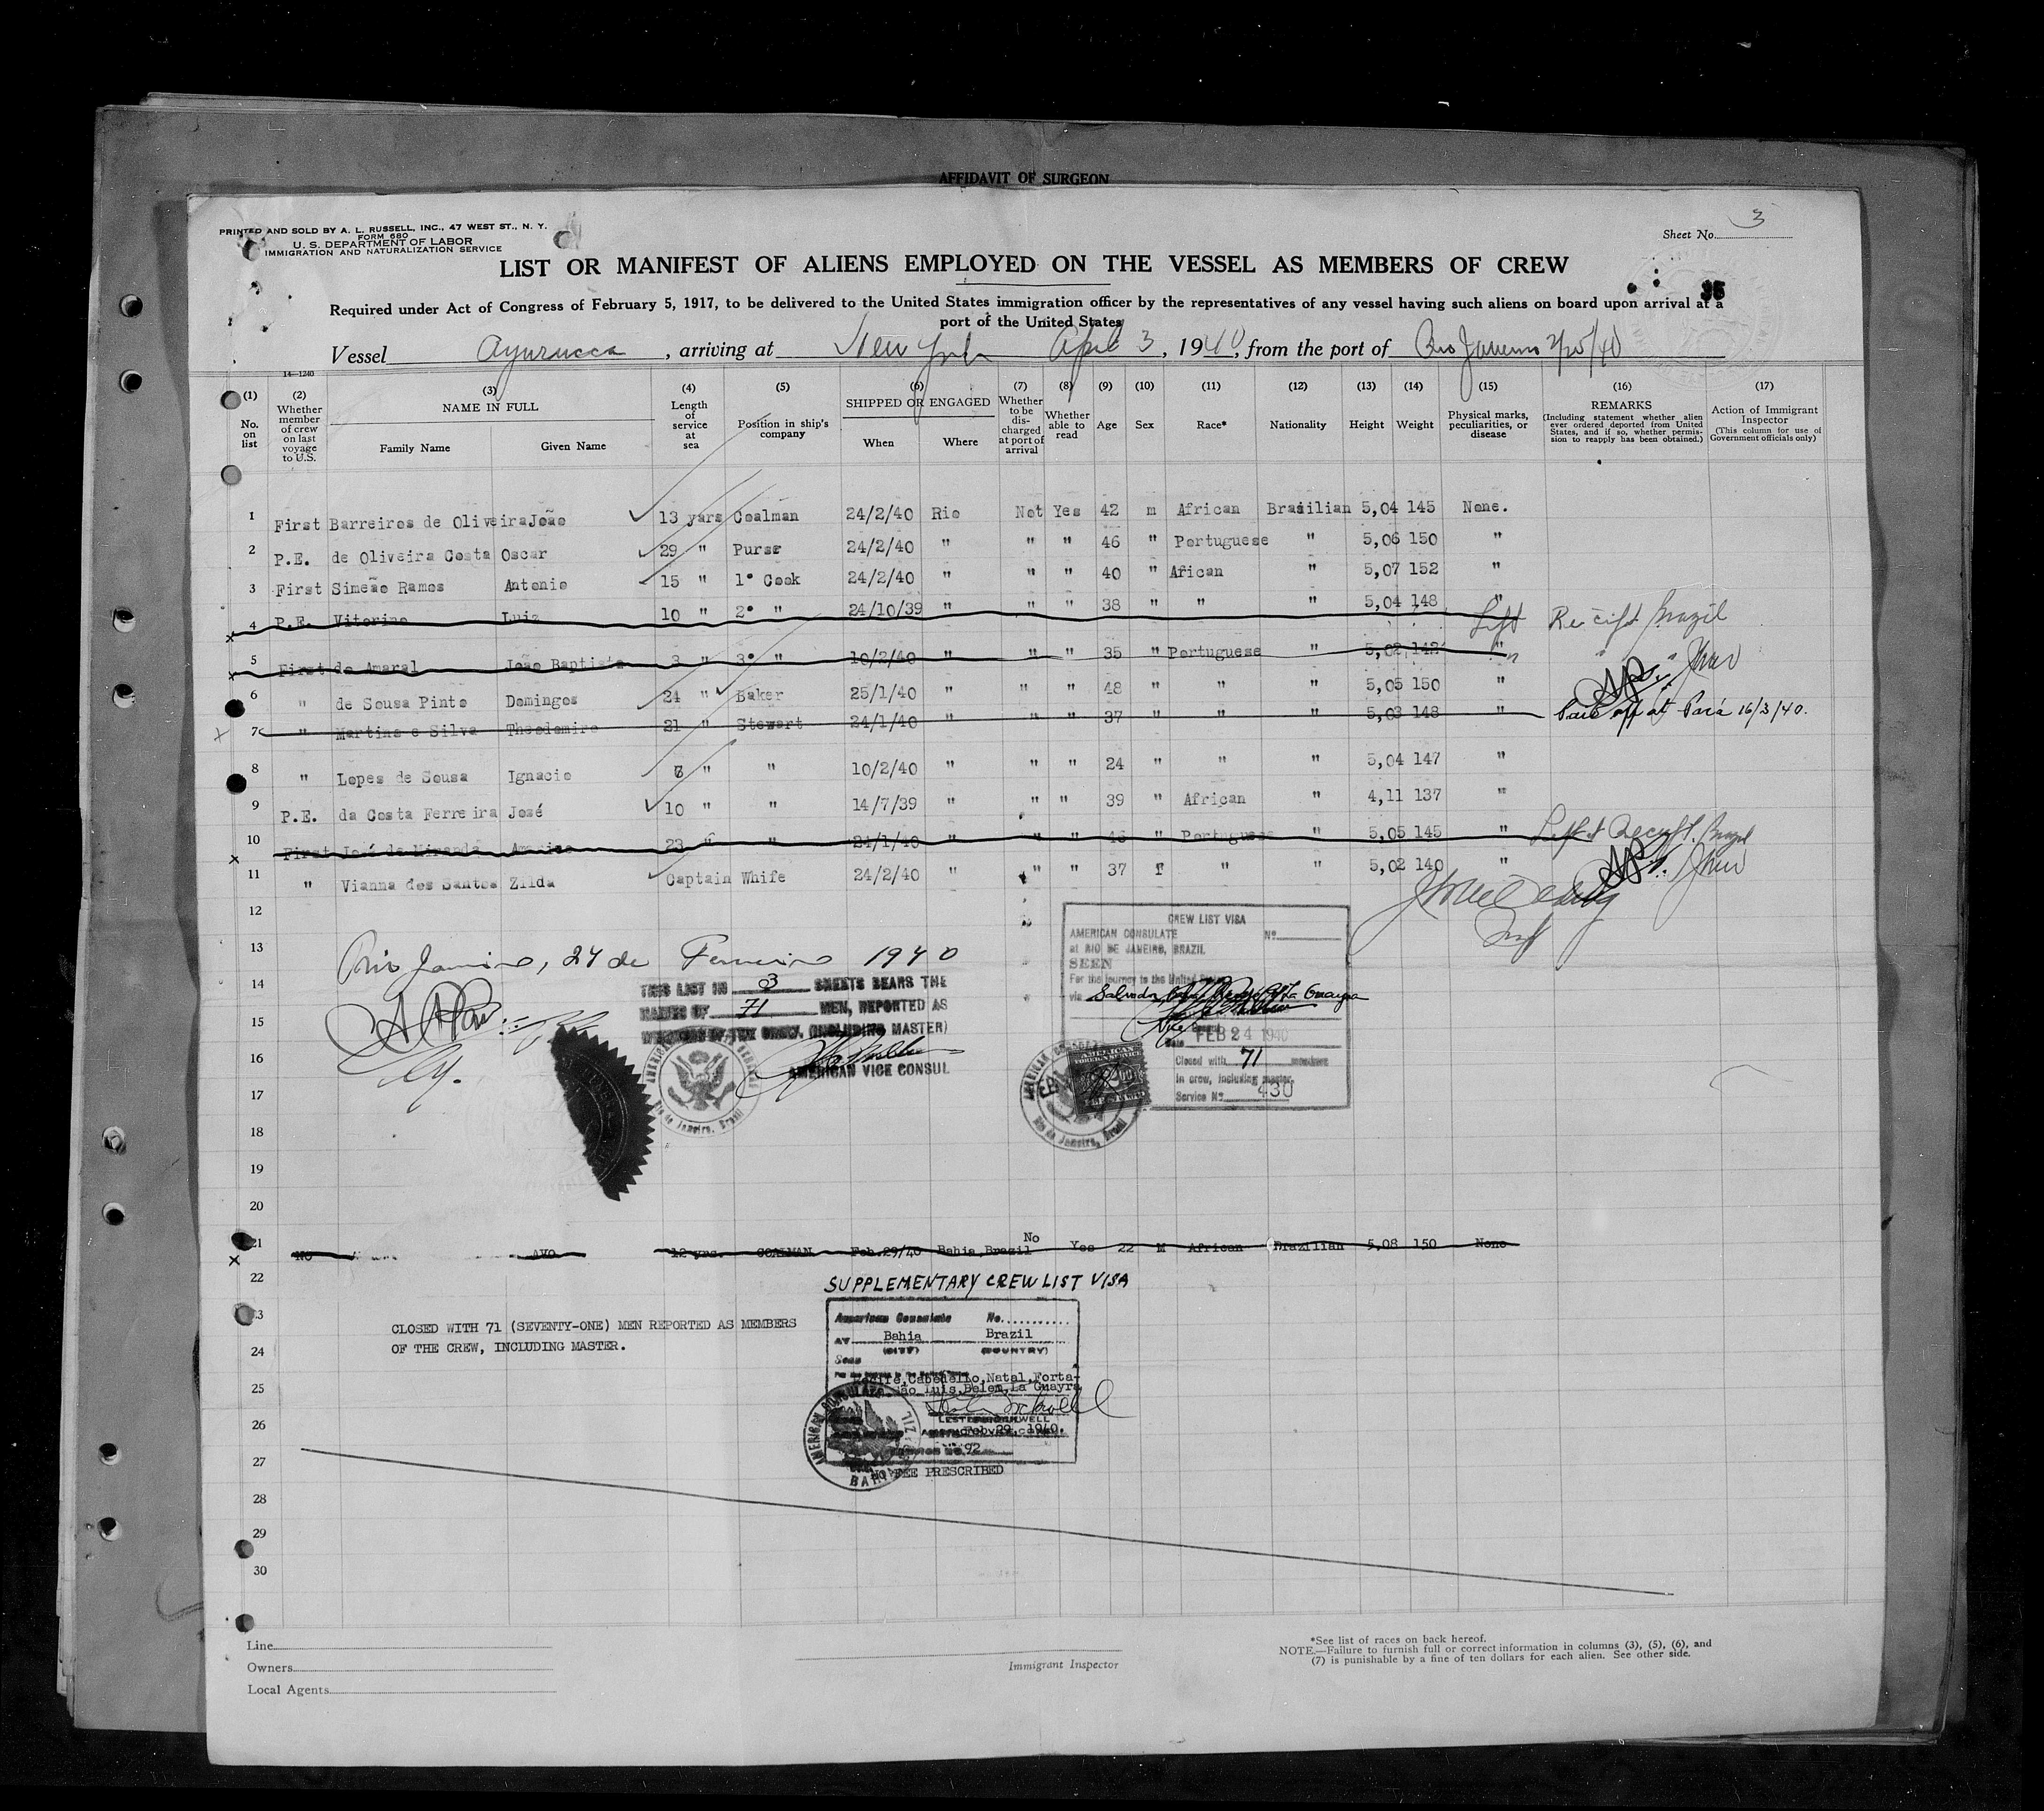 AFFIDAVIT OF SURGEON
PRINTED AND SOLD BY A. L. RUSSELL, INC., 47 WEST ST., N. Y.
FORM 680
U. S. DEPARTMENT OF LABOR
IMMIGRATION AND NATURALIZATION SERVICE
Sheet No. 3
LIST OR MANIFEST OF ALIENS EMPLOYED ON THE VESSEL AS MEMBERS OF CREW
35
Required under Act of Congress of February 5, 1917, to be delivered to the United States immigration officer by the representatives of any vessel having such aliens on board upon arrival at a
port of the United States
Vessel Ayuruoca, arriving at New York April 3, 1940, from the port of Rio Janeiro 2/25/40
14—1240
(1) No. on list
(2) Whether member of crew on last voyage to U.S.
(3) NAME IN FULL Family Name Given Name
(4) Length of service at sea
(5) Position in ship's company
(6) SHIPPED OR ENGAGED When Where
(7) Whether to be discharged at port of arrival
(8) Whether able to read
(9) Age
(10) Sex
(11) Race*
(12) Nationality
(13) Height
(14) Weight
(15) Physical marks, peculiarities, or disease
(16) REMARKS (Including statement whether alien ever ordered deported from United States, and if so, whether permission to reapply has been obtained.)
(17) Action of Immigrant Inspector (This column for use of Government officials only)
1 First Barreiros de Oliveira João 13 yars Coalman 24/2/40 Rio Not Yes 42 m African Brasilian 5,04 145 None.
2 P.E. de Oliveira Costa Oscar 29 " Purse 24/2/40 " " " 46 " Portuguese " 5,06 150 "
3 First Simeão Ramos Antonio 15 " 1º Cook 24/2/40 " " " 40 " Afican " 5,07 152 "
4 P.E. Vitorino Luiz 10 " 2º " 24/10/39 " " " 38 " " " 5,04 148 " Left Brazil
5 First do Amaral João Baptista 3 " 3º " 10/2/40 " " " 35 " Portuguese " 5,02 142 " "
6 " de Sousa Pinto Domingos 24 " Baker 25/1/40 " " " 48 " " " 5,05 150 "
7 " Martins e Silva Theodomiro 21 " Stewart 24/1/40 " " " 37 " " " 5,03 148 " Paid off at Pará 16/3/40.
8 " Lopes de Sousa Ignacio " " 10/2/40 " " " 24 " " " 5,04 147 "
9 P.E. da Costa Ferreira José 10 " " 14/7/39 " " " 39 " African " 4,11 137 "
10 First José de Miranda Americo 23 " " 24/1/40 " " " 46 " Portuguese " 5,05 145 " Brazil
11 " Vianna dos Santos Zilda Captain Whife 24/2/40 " " " 37 f " " 5,02 140 "
12
13 Rio Janeiro, 24 de Fevereiro 1940
14
15
16
17
18
19
20
THIS LIST IN 3 SHEETS BEARS THE
NAMES OF 71 MEN, REPORTED AS
MEMBERS OF THE CREW, (INCLUDING MASTER)
AMERICAN VICE CONSUL
Rio de Janeiro, Brazil
CREW LIST VISA
AMERICAN CONSULATE No.
at RIO DE JANEIRO, BRAZIL
SEEN
For the journey to the United States
via Salvador La Guayra
Date FEB 24 1940
Closed with 71 members
in crew, including master.
Service No. 430
AMERICAN FOREIGN SERVICE
Rio de Janeiro, Brazil
21 NO 12 yrs. COALMAN Feb.29/40 Bahia,Brazil No Yes 22 M African Brazilian 5,08 150 None
22 SUPPLEMENTARY CREW LIST VISA
23
CLOSED WITH 71 (SEVENTY-ONE) MEN REPORTED AS MEMBERS
OF THE CREW, INCLUDING MASTER.
24
25
26
27
28
29
30
American Consulate No.
AT Bahia Brazil
(CITY) (COUNTRY)
Seen
Recife,Cabedello,Natal,Forta-
São Luis,Belem,La Guayra
Feb. 29, 1940.
92
BAHIA
NO FEE PRESCRIBED
Line
Owners
Local Agents
Immigrant Inspector
*See list of races on back hereof.
NOTE.—Failure to furnish full or correct information in columns (3), (5), (6), and
(7) is punishable by a fine of ten dollars for each alien. See other side.